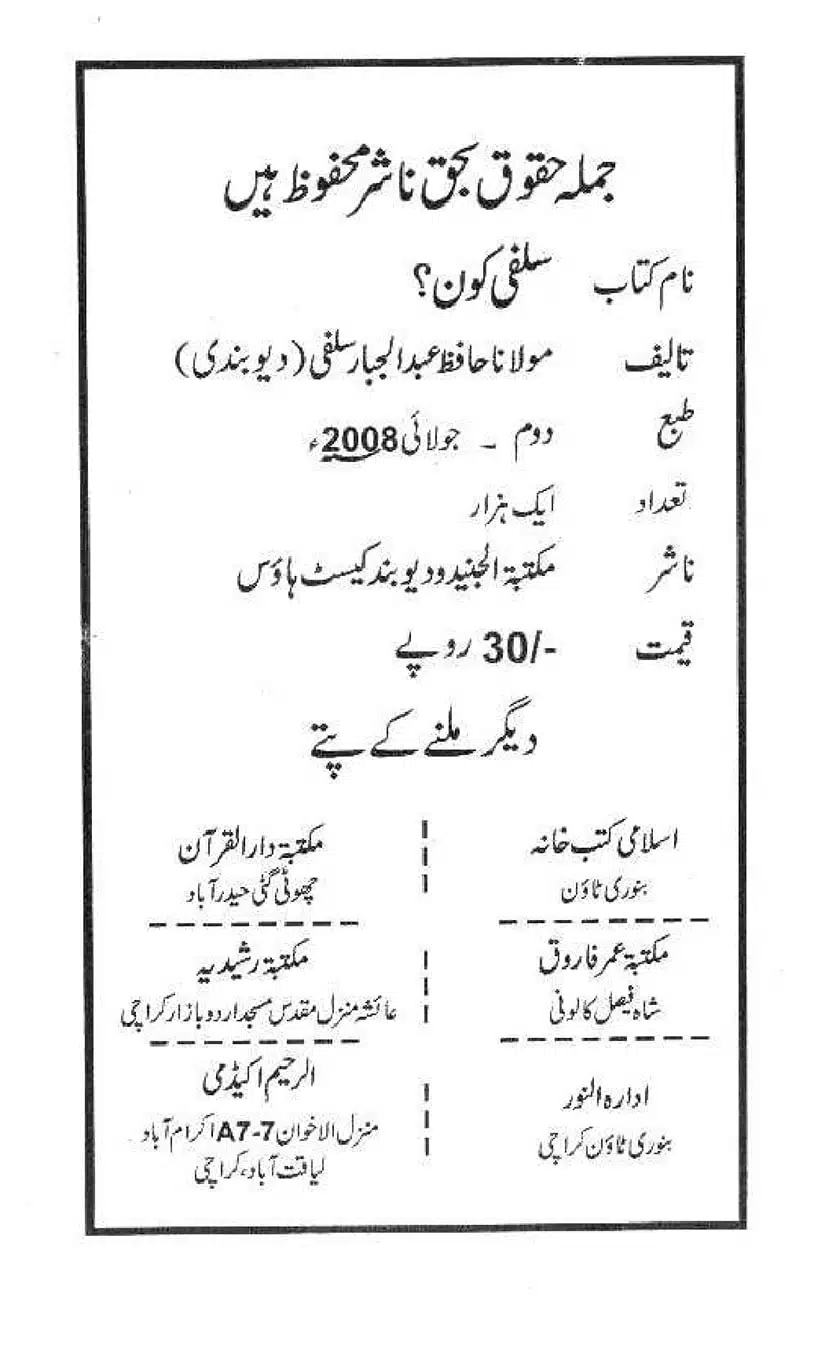 جملہ حقوق بحق ناشر محفوظ ہیں
نام کتاب سلفی کون؟
تالیف مولانا حافظ عبدالجبار سلفی (دیوبندی)
طبع دوم ۔ جولائی 2008ء
تعداد ایک ہزار
ناشر مکتبۃ الجنید و دیوبند کیسٹ ہاؤس
قیمت 30/- روپے
دیگر ملنے کے پتے
اسلامی کتب خانہ
بنوری ٹاؤن
مکتبۃ دارالقرآن
چھوٹی گٹی حیدرآباد
مکتبۃ عمر فاروق
شاہ فیصل کالونی
مکتبۃ رشیدیہ
عائشہ منزل مقدس مسجد اردو بازار کراچی
ادارہ النور
بنوری ٹاؤن کراچی
الرحیم اکیڈمی
منزل الاخوان A7-7 اکرام آباد
لیاقت آباد، کراچی